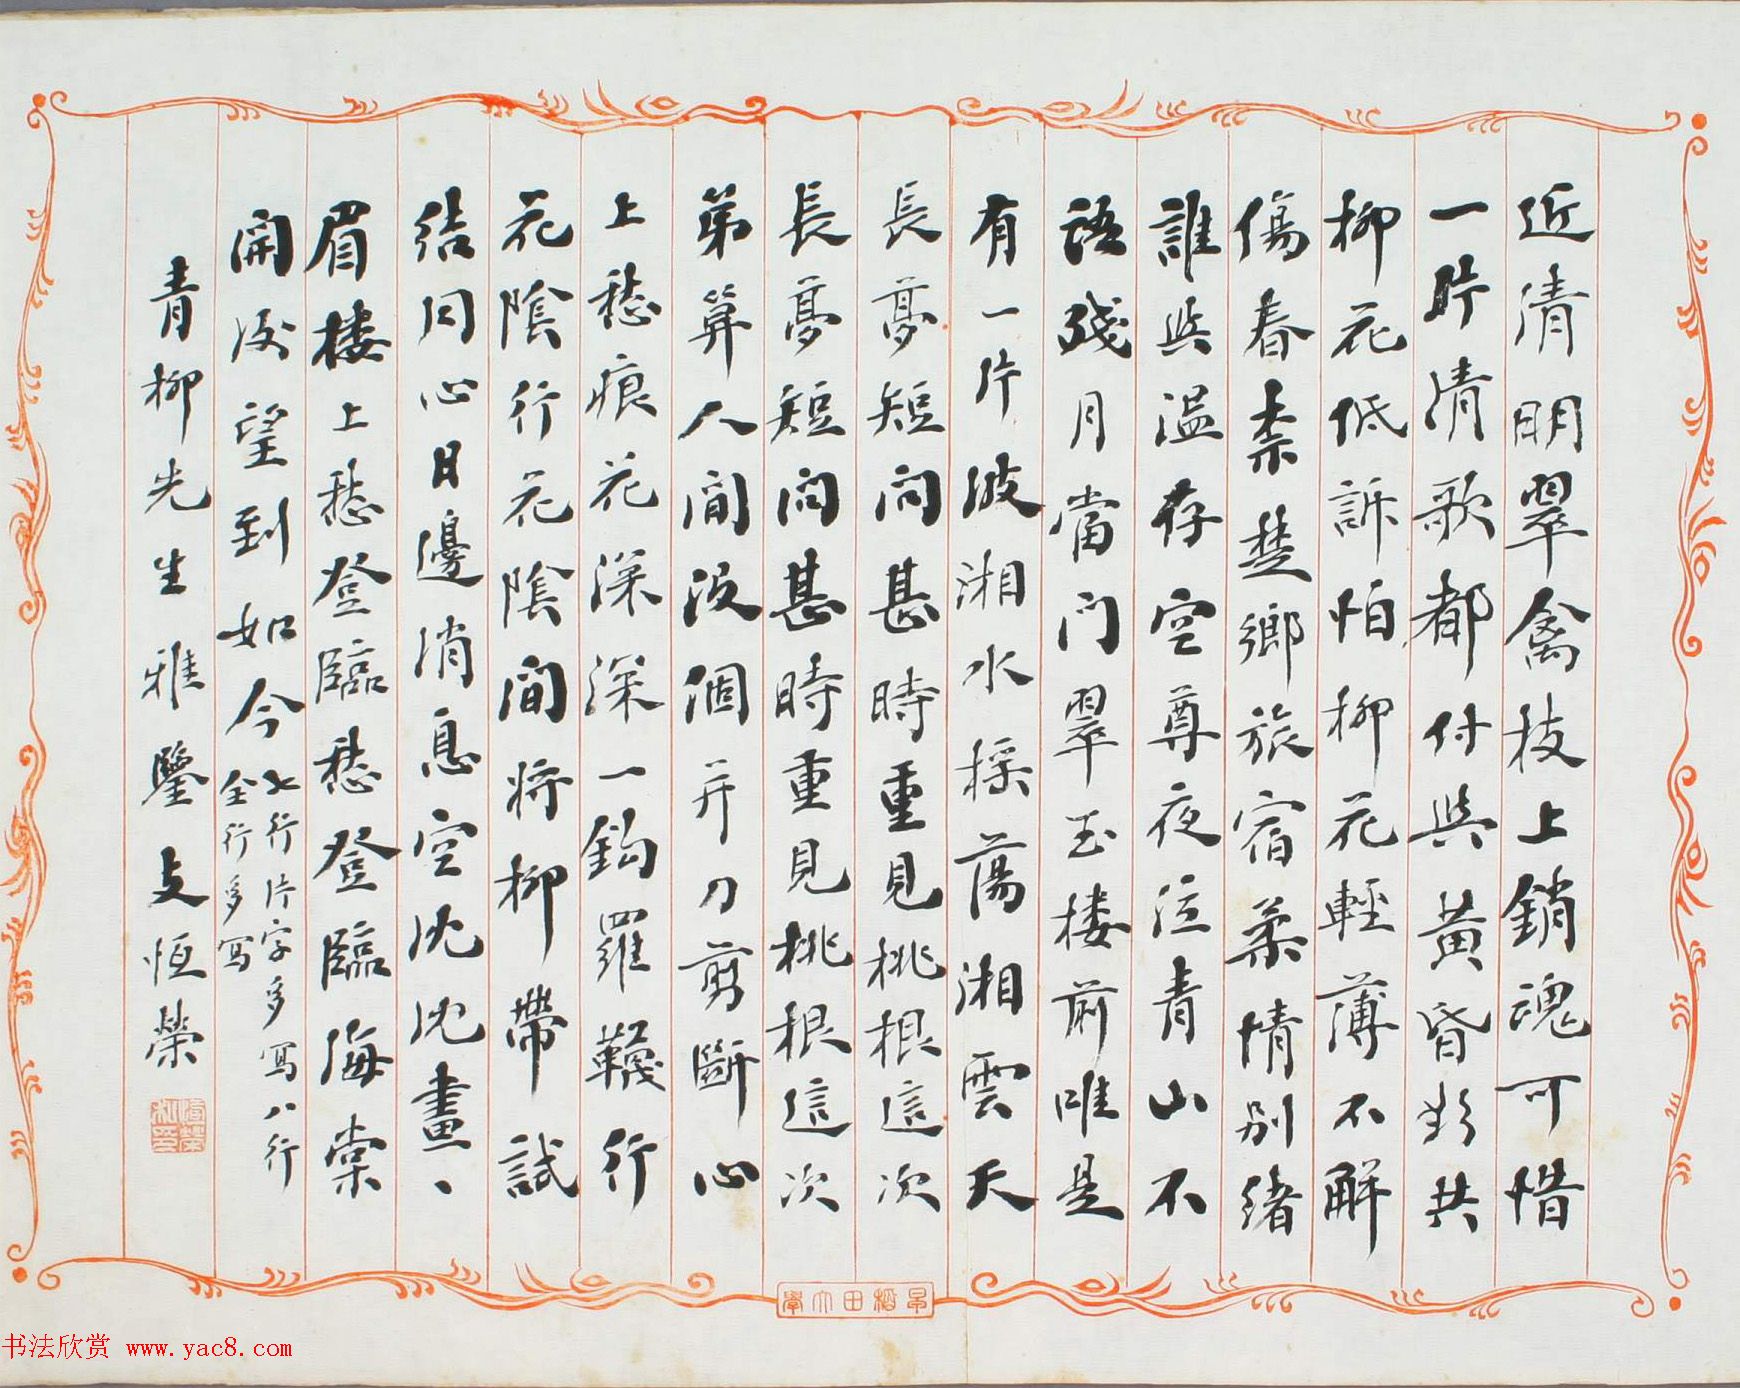 近清明翠禽枝上銷魂可惜
一片清歌都付與黃昏欲共
柳花低訴怕柳花輕薄不解
傷春柰楚鄉旅宿柔情別緒
誰與溫存空尊夜泣青山不
語殘月當門翠玉樓前唯是
有一片波湘水搖蕩湘雲天
長夢短問甚時重見桃根這次
長夢短問甚時重見桃根這次
弟算人間没個并刀剪斷心
上愁痕花深深一鉤羅韈行
花陰行花陰間將柳帶試
結同心日邊消息空沈沈畫、
眉樓上愁登臨愁登臨海棠
開後望到如今
七行片字多寫八行
全行多写
青柳先生雅鑒支恒榮
早稻田大學
书法欣赏 www.yac8.com